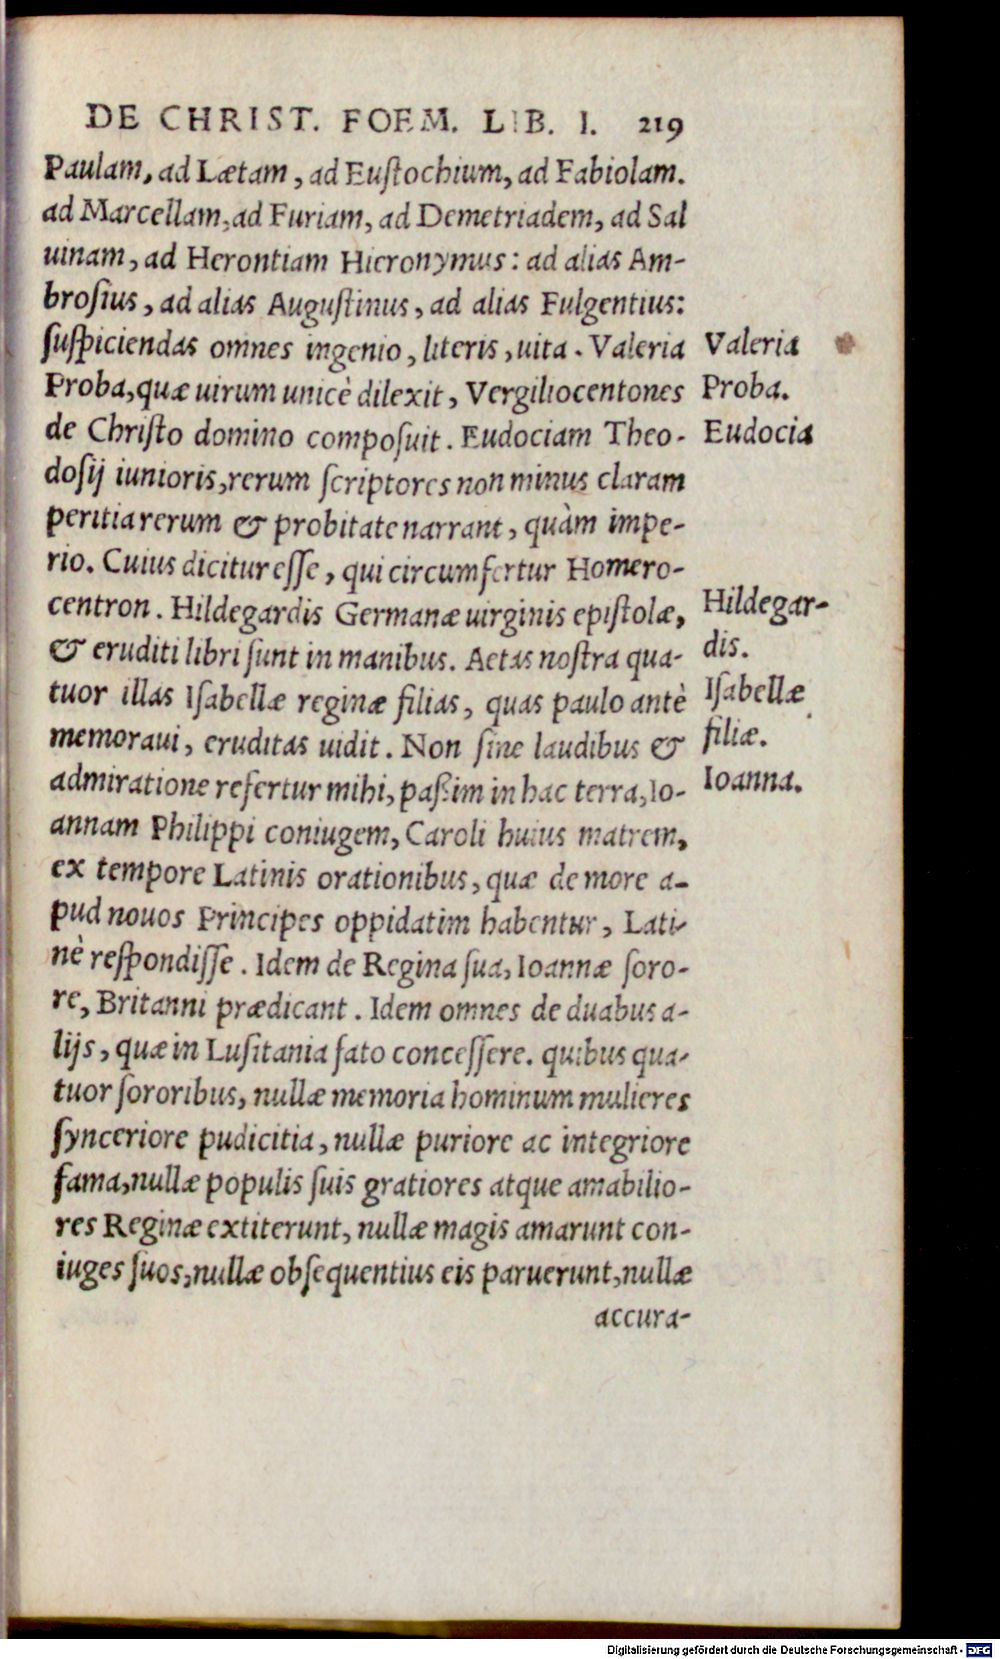 DE CHRIST. FOEM. LIB. I. 219
Paulam, ad Lætam, ad Euſtochium, ad Fabiolam.
ad Marcellam, ad Furiam, ad Demetriadem, ad Sal
uinam, ad Herontiam Hieronymus: ad alias Am-
broſius, ad alias Auguſtinus, ad alias Fulgentius:
ſuſpiciendas omnes ingenio, literis, uita. Valeria
Proba, quæ uirum unicè dilexit, Vergiliocentones
de Chriſto domino compoſuit. Eudociam Theo-
doſij iunioris, rerum ſcriptores non minus claram
peritia rerum & probitate narrant, quàm impe-
rio. Cuius dicitur eſſe, qui circumfertur Homero-
centron. Hildegardis Germanæ uirginis epiſtolæ,
& eruditi libri ſunt in manibus. Aetas noſtra qua-
tuor illas Iſabellæ reginæ filias, quas paulo antè
memoraui, eruditas uidit. Non ſine laudibus &
admiratione refertur mihi, paßim in hac terra, Io-
annam Philippi coniugem, Caroli huius matrem,
ex tempore Latinis orationibus, quæ de more a-
pud nouos Principes oppidatim habentur, Lati-
nè reſpondiſſe. Idem de Regina ſua, Ioannæ ſoro-
re, Britanni prædicant. Idem omnes de duabus a-
lijs, quæ in Luſitania fato conceſſere. quibus qua-
tuor ſororibus, nullæ memoria hominum mulieres
ſynceriore pudicitia, nullæ puriore ac integriore
fama, nullæ populis ſuis gratiores atque amabilio-
res Reginæ extiterunt, nullæ magis amarunt con-
iuges ſuos, nullæ obſequentius eis paruerunt, nullæ
accura-
Valeria
Proba.
Eudocia
Hildegar-
dis.
Iſabellæ
filiæ.
Ioanna.
Digitalisierung gefördert durch die Deutsche Forschungsgemeinschaft - DFG